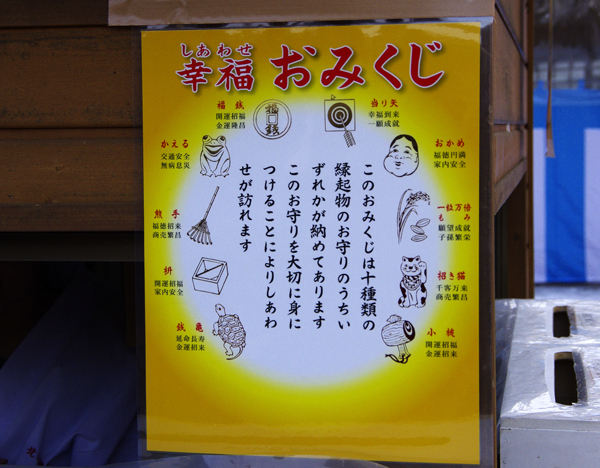 しあわせ
幸福おみくじ
当り矢
幸福到来
一願成就
おかめ
福徳円満
家内安全
一粒万倍
もみ
願望成就
子孫繁栄
招き猫
千客万来
商売繁昌
小槌
開運招福
金運招来
福銭
開運招福
金運隆昌
かえる
交通安全
無病息災
熊手
福徳招来
商売繁昌
枡
開運招福
家内安全
銭亀
延命長寿
金運招来
福銭
このおみくじは十種類の
縁起物のお守りのうちい
ずれかが納めてあります
このお守りを大切に身に
つけることによりしあわ
せが訪れます